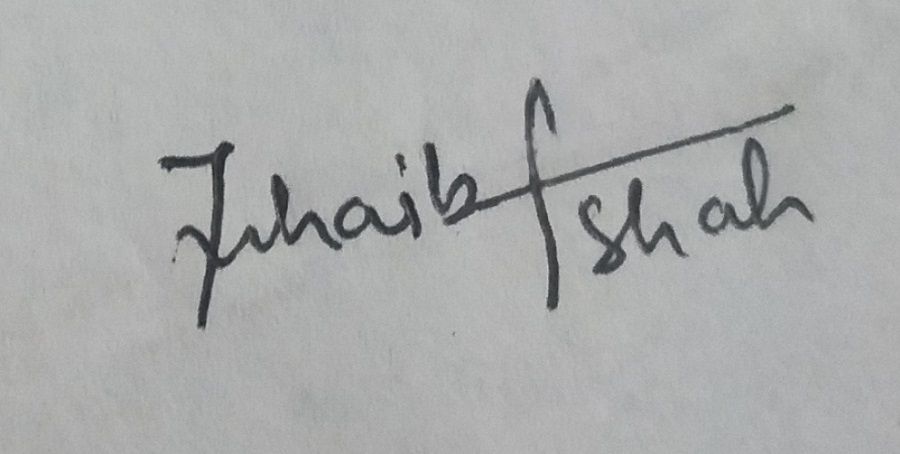 Zuhaib Shah